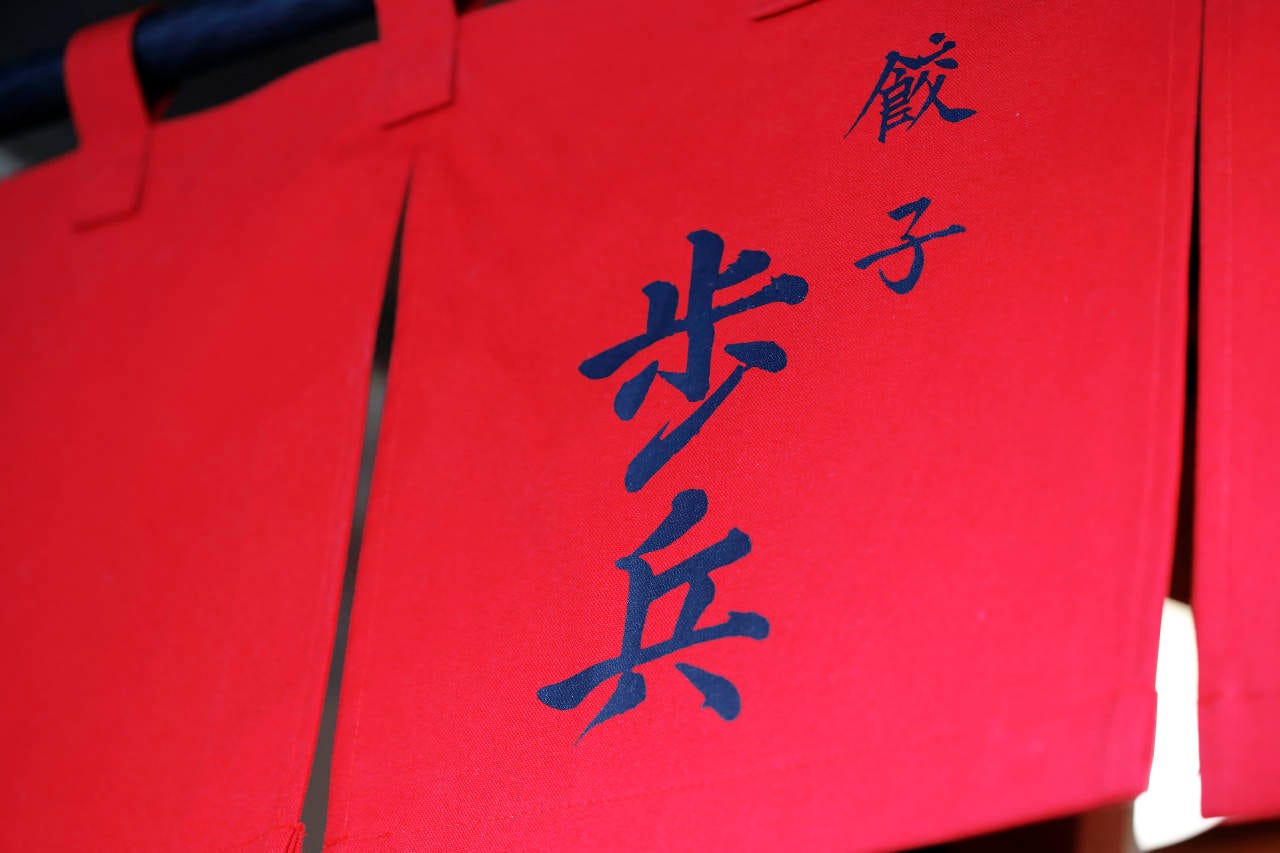 餃子
歩兵